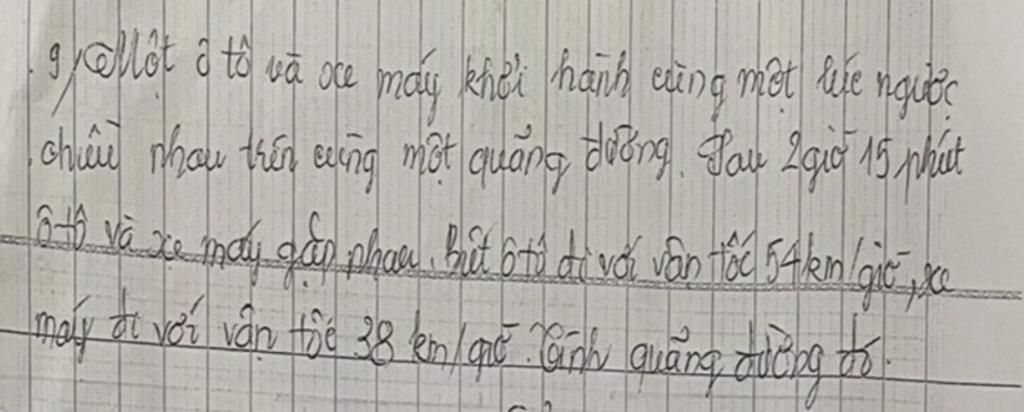 9, Một ô tô và xe máy khởi hành cùng một lúc ngược
chiều nhau trên cùng một quảng đường. Sau 2giờ 15 phút
ô tô và xe máy gặp nhau. Biết ô tô đi với vận tốc 54km/giờ, xe
máy đi với vận tốc 38 km/giờ. Tính quảng đường đó.